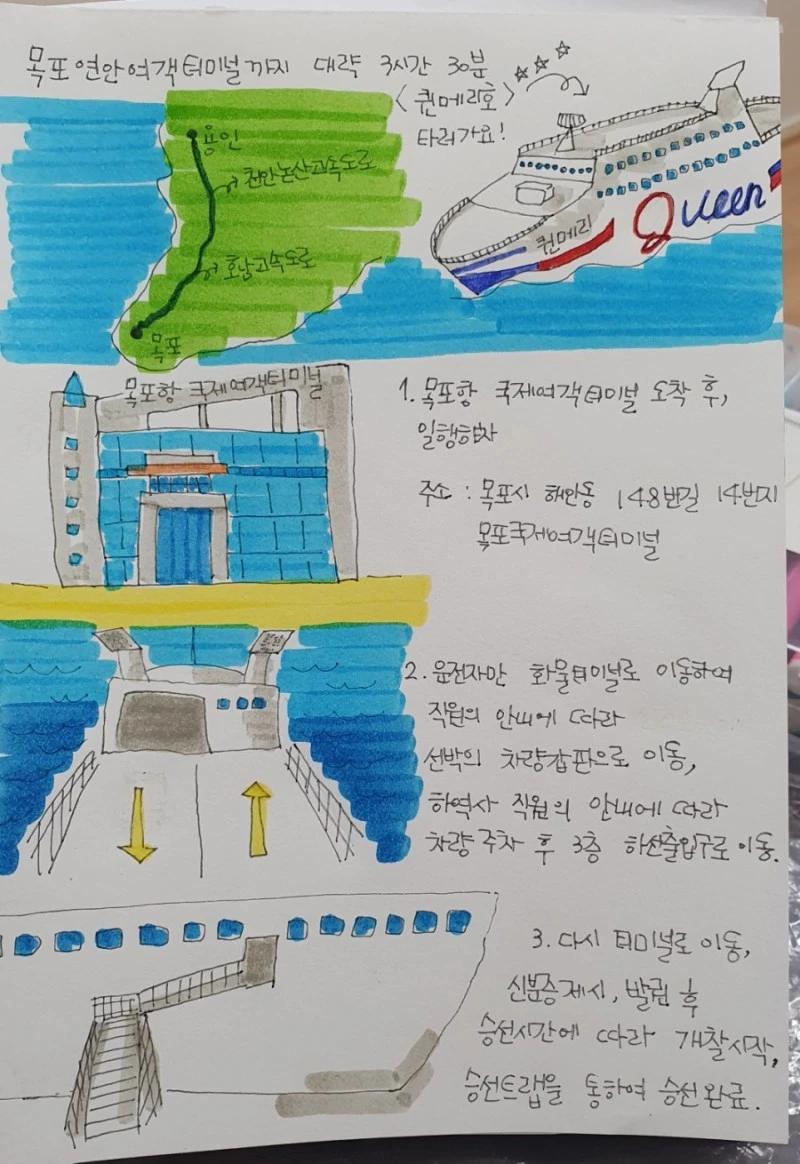 목포연안여객터미널까지 대략 3시간 30분
<퀸메리호>
타러가요!
용인
천안논산고속도로
호남고속도로
목포
퀸메리
Queen
목포항 국제여객터미널
1. 목포항 국제여객터미널 도착 후,
일행하차
주소 : 목포시 해안동 148번길 14번지
목포국제여객터미널
2. 운전자만 화물터미널로 이동하여
직원의 안내에 따라
선박의 차량갑판으로 이동,
하역사 직원의 안내에 따라
차량주차 후 3층 하선출입구로 이동.
3. 다시 터미널로 이동,
신분증제시, 발권 후
승선시간에 따라 개찰시작,
승선트랩을 통하여 승선완료.